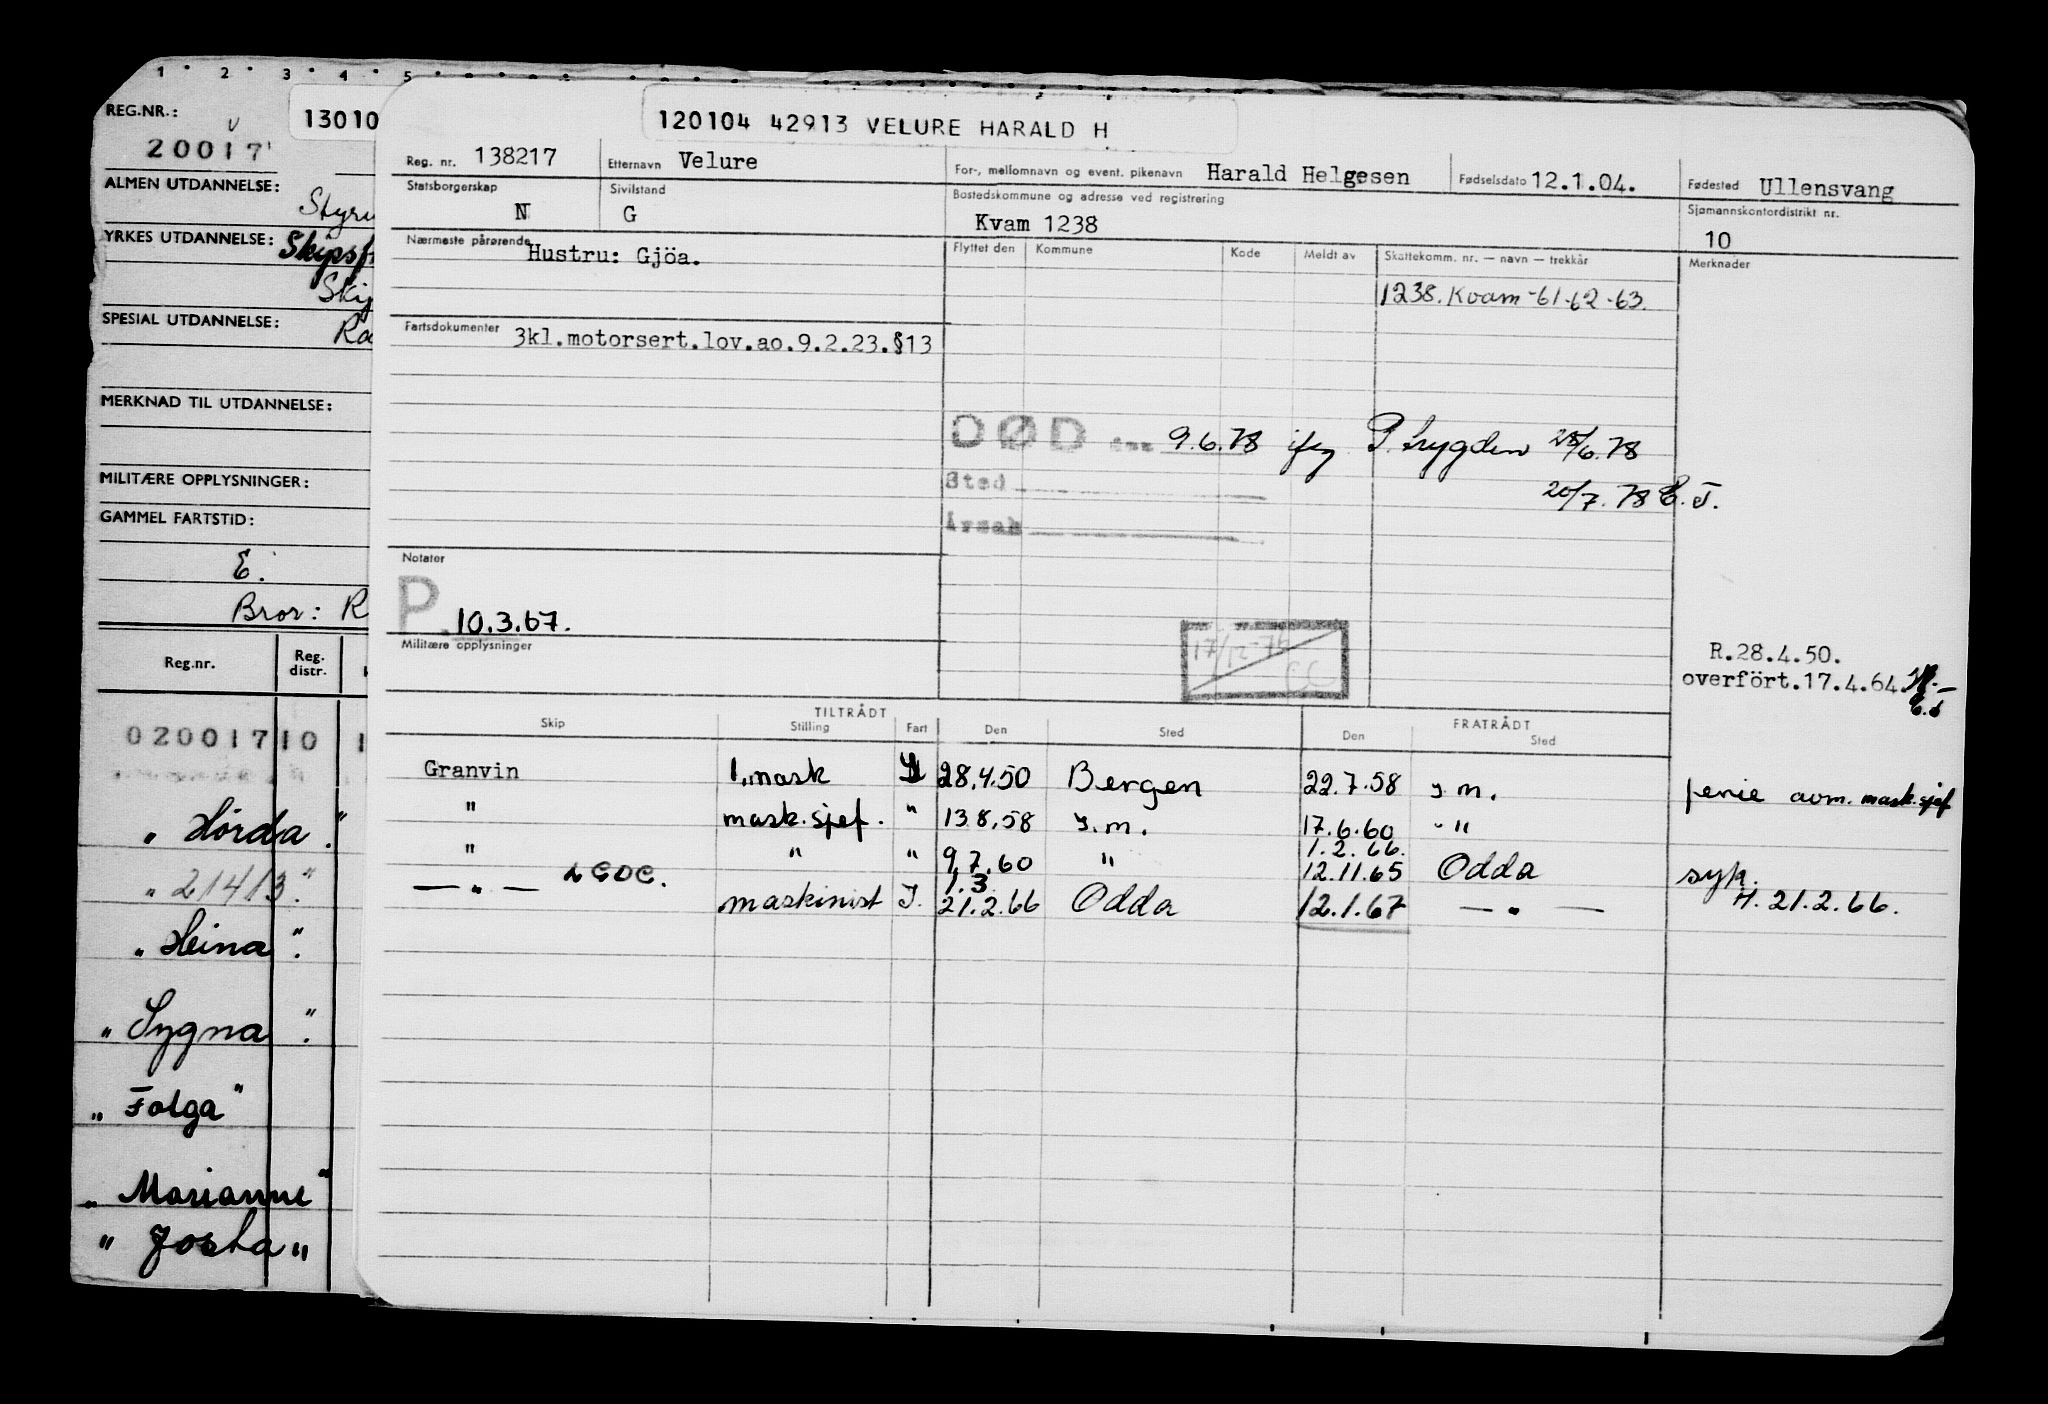 1 2 3 4 5
REG.NR.:
20017
13010
ALMEN UTDANNELSE:
YRKES UTDANNELSE:
SPESIAL UTDANNELSE:
MERKNAD TIL UTDANNELSE:
MILITÆRE OPPLYSNINGER:
GAMMEL FARTSTID:
E.
Bror: R
Reg.nr. Reg. distr.
02001710 1
„ Hörda "
„ 21413."
„ Heina "
„ Sygna "
„ Folga "
„ Marianne "
" Josta "
120104 42913 VELURE HARALD H
Reg. nr. 138217 Etternavn Velure For-, mellomnavn og event. pikenavn Harald Helgesen Fødselsdato 12.1.04. Fødested Ullensvang
Statsborgerskap N Sivilstand G Bostedskommune og adresse ved registrering Kvam 1238 Sjømannskontordistrikt nr. 10
Nærmeste pårørende Hustru: Gjöa. Flyttet den Kommune Kode Meldt av Skattekomm. nr. — navn — trekkår Merknader
1238. Kvam -61-62-63.
Fartsdokumenter 3kl.motorsert.lov.ao.9.2.23.§13
DØD den 9.6.78 ifg P.trygden 28/6.78
Sted 20/7.78 E.T.
Årsak
Notater
P 10.3.67.
Militære opplysninger
17/12-76
CC
R.28.4.50.
overfört.17.4.64
TILTRÅDT FRATRÅDT
Skip Stilling Fart Den Sted Den Sted
Granvin 1.mask 28.4.50 Bergen 22.7.58 s m. ferie avm. mask.sjef
" mask.sjef. " 13.8.58 s.m. 17.6.60 - "
" " " 9.7.60 " 1.2.66. 12.11.65 Odda syk.
— " — maskinist 1.3. 21.2.66 Odda 12.1.67 — " — H. 21.2.66.